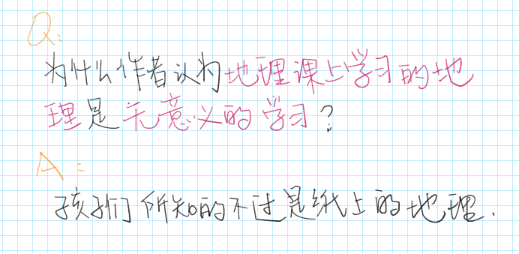 Q:
为什么作者认为地理课上学习的地
理是无意义的学习?
A:
孩子们所知的不过是纸上的地理.